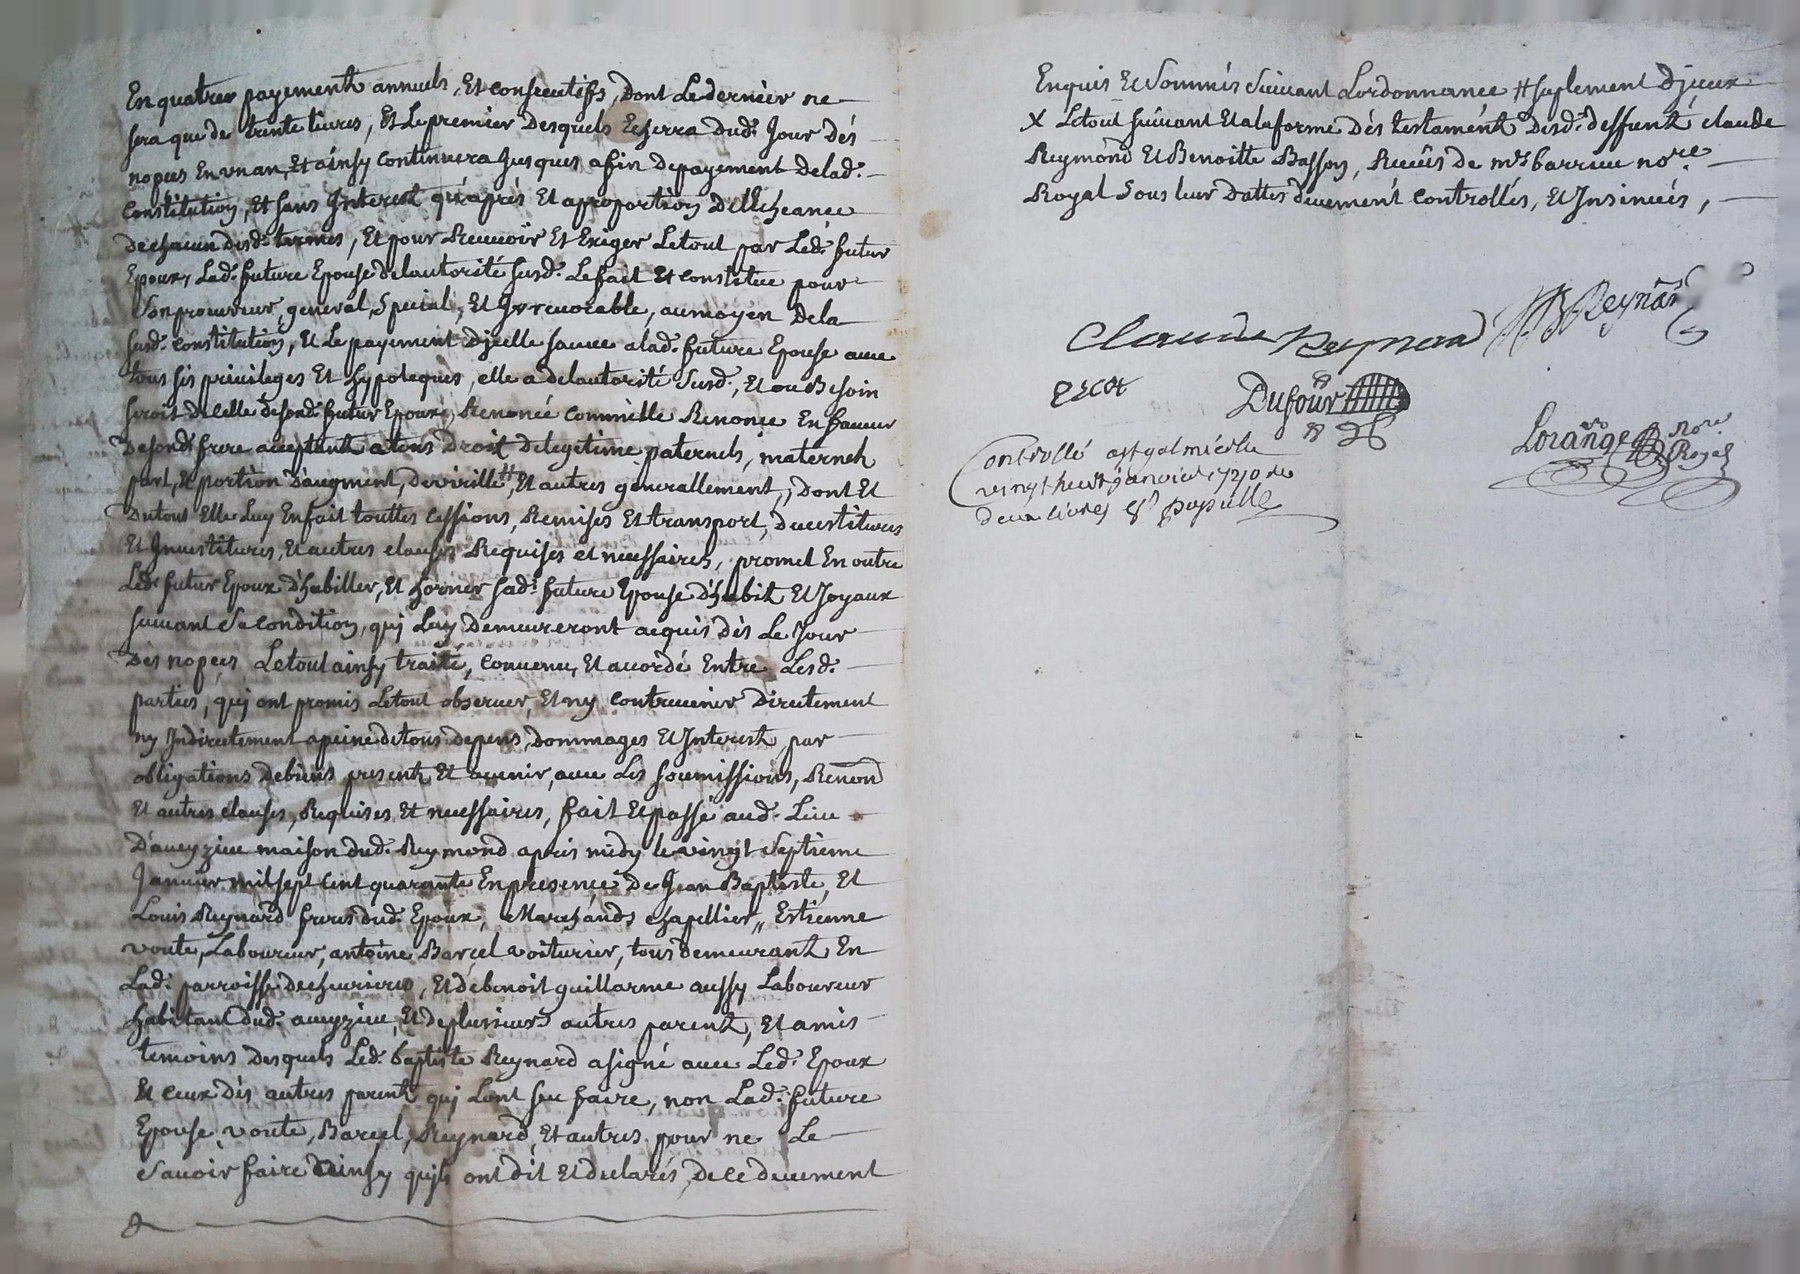 En quatres payements annuels, Et consecutifs, Dont Le dernier ne
sera que de trente livres, Et Le premier Desquels Echerra dud. Jour Des
nopces En un an, Et ainsy continuera Jusques a fin de payement de lad.
Constitution, Et sans Interest qu'apres Et a proportion De L'echeance
de chacun desd. termes, Et pour Recevoir Et Exiger Le tout par Led. futur
Epoux, Lad. future Epouse de lautorité susd. Le fait Et constitue pour
son procureur general, Special, Et Irrevocable, au moyen De la
susd. constitution, Et Le payement d'jcelle sauve a lad. future Epouse avec
tous ses privileges Et hypoteques, elle a de lautorité susd., Et ou Besoin
seroit de celle de sond. futur Epoux, Renoncé comm'elle Renonce En faveur
De sond. frere acceptant a tous Droit de legitime paternels, maternels
part, Et portion D'augment, De virille ++, Et autres generallement, Dont Et
Du tout Elle Luy En fait touttes Cessions, Remises Et transport, Devestitures
Et Investitures, Et autres clauses Requises et necessaires, promet En outre
Led. futur Epoux d'habiller, Et horner sad. future Epouse d'habit Et Joyaux
suivant sa condition, quj Luy Demeureront acquis dès Le Jour
Des nopces Le tout ainsy traité, convenu, Et accordé Entre Lesd.
parties, quj ont promis Le tout observer, Et ny contrevenir Directement
ny Indirectement a peine de tous depens, Dommages Et Interest, par
obligations De biens present, Et avenir, avec Les soumissions, Renon
Et autres clauses, Requises Et necessaires, fait Et passé aud. Lieu
D'aveyzieu maison dud. Reymond apres midy le vingt Septieme
Janvier mil sept cent quarante En presence de Jean Baptiste, Et
Louis Reynard freres dud. Epoux, Marchands chapellier, Estienne
voute, Laboureur, antoine Barcel voiturier, tous demeurant En
Lad. parroisse de chevrieres, Et de benoit guillarme aussy Laboureur
habitant dud. aveyzieu, Et de plusieurs autres parent, Et amis
temoins Desquels Led. baptiste Reynard a signé avec Led. Epoux
Et ceux dès autres parent quj L'ont sçu faire, non Lad. future
Epouse, voute, Barcel, Reynard, Et autres pour ne Le
Savoir faire ainsy qu'ils ont dit Et declarés, De ce Deuement
Enquis Et Sommés Suivant Lordonnance ++ suplement D'jceux
X Le tout suivant Et a la forme Des testament Desd. deffunt claude
Reymond Et Benoitte Basson, Receus de me barrieu nore
Royal Sous leur Dattes deuement Controllés, Et Insinués,
Claude Reynard
Reynard
Dufour
Lorange Nore
Royal
Controllé a st galmier le
vingt huit janvier 1740 Re
deux livres